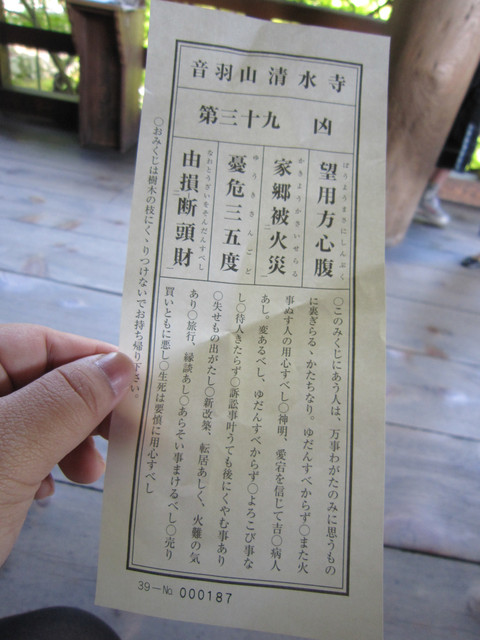 音羽山清水寺
第三十九 凶
望用方心腹
ぼうようまさにしんぷく
家郷被火災
かきょうかさいせらる
憂危三五度
ゆうきさんごど
由損断頭財
なおとうざいをそんだんすべし
○このみくじにあう人は、万事わがたのみに思うもの
に裏ぎらるゝかたちなり。ゆだんすべからず○また火
事ぬす人の用心すべし○神明、愛宕を信じて吉○病人
あし。変あるべし、ゆだんすべからず○よろこび事な
し○待人きたらず○訴訟事叶うても後にくやむ事あり
○失せもの出がたし○新改築、転居あしく、火難の気
あり○旅行、縁談あし○あらそい事まけるべし○売り
買いともに悪し○生死は要慎に用心すべし
○おみくじは樹木の枝にくゝりつけないでお持ち帰り下さい。
39－No 000187